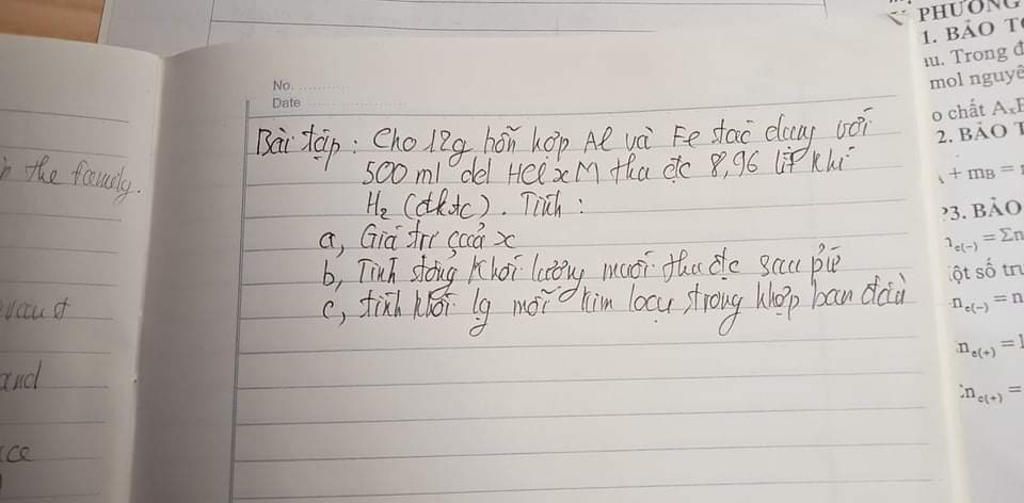 No.
Date
Bài tập: Cho 12g hỗn hợp Al và Fe tác dụng với
500 ml dd HCl x M thu đc 8,96 lít khí
H₂ (đktc). Tính:
a, Giá trị của x
b, Tính tổng khối lượng muối thu đc sau pứ
c, tính khối lg mỗi kim loại trong hhợp ban đầu
in the family.
and
PHƯƠNG
1. BẢO TO
au. Trong đ
mol nguyê
o chất AₓB
2. BẢO T
+ mB =
3. BẢO
nₑ₍₋₎ = Σn
ột số trư
nₑ₍₋₎ = n
nₑ₍₊₎ = 1
nₑ₍₊₎ =